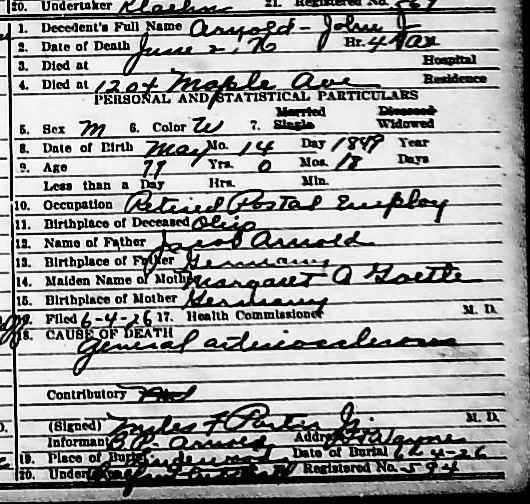 20. Undertaker Klaehn 21. Registered No. 567
1. Decedent's Full Name Arnold - John J
2. Date of Death June 2, 26 Hr. 4 PM
3. Died at Hospital
4. Died at 1204 Maple Ave Residence
PERSONAL AND STATISTICAL PARTICULARS
Married Divorced
5. Sex M 6. Color W 7. Single Widowed
8. Date of Birth May Mo. 14 Day 1849 Year
9. Age 77 Yrs. 0 Mos. 18 Days
Less than a Day Hrs. Min.
10. Occupation Retired Postal Employ
11. Birthplace of Deceased Ohio
12. Name of Father Jacob Arnold
13. Birthplace of Father Germany
14. Maiden Name of Mother Margaret A Goettle
15. Birthplace of Mother Germany
Filed 6-4-26 17. Health Commissioner M. D.
18. CAUSE OF DEATH
General arteriosclerosis
Contributory
(Signed) Miles F Porter Jr. M. D.
Informant Arnold Address Ft Wayne
19. Place of Burial Lindenwood Date of Burial 6-4-26
20. Undertaker Registered No. 594